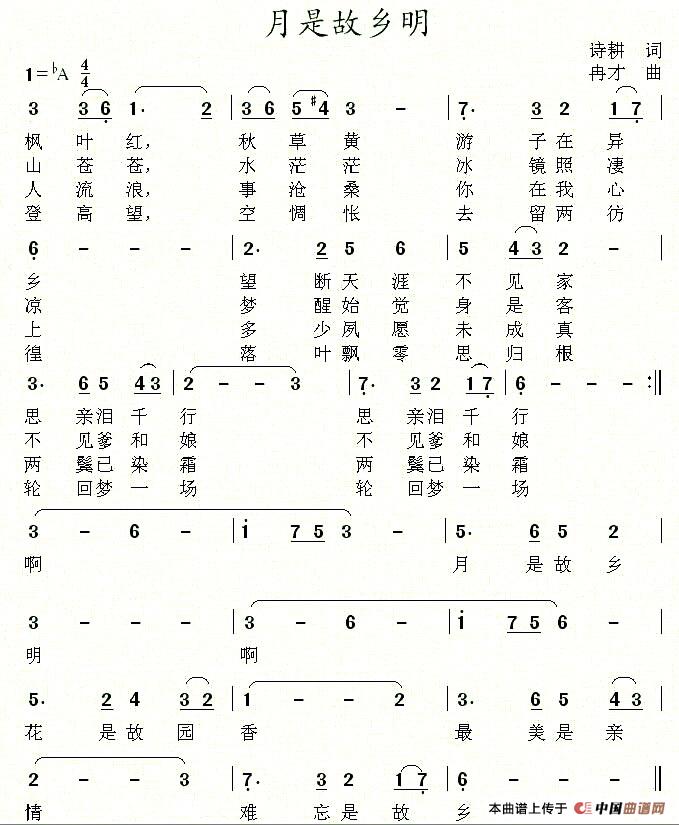 月是故乡明
诗耕 词
1=♭A 4/4
冉才 曲
3 3 6 1· 2 | 3 6 5 #4 3 - | 7· 3 2 1 7 |
枫叶红，秋草黄 游子在异
山苍苍，水茫茫 冰镜照凄
人流浪，事沧桑 你在我心
登高望，空惆怅 去留两彷
6 - - - | 2· 2 5 6 | 5 4 3 2 - |
乡 望断天涯不见家
凉 梦醒始觉身是客
上 多少夙愿未成真
徨 落叶飘零思归根
3· 6 5 4 3 | 2 - - 3 | 7· 3 2 1 7 | 6 - - :||
思亲泪千行 思亲泪千行
不见爹和娘 不见爹和娘
两鬓已染霜 两鬓已染霜
轮回梦一场 轮回梦一场
3 - 6 - | i 7 5 3 - | 5· 6 5 2 |
啊 月是故乡
3 - - - | 3 - 6 - | i 7 5 6 - |
明 啊
5· 2 4 3 2 | 1 - - 2 | 3· 6 5 4 3 |
花是故园香 最美是亲
2 - - 3 | 7· 3 2 1 7 | 6 - - - ||
情 难忘是故乡
本曲谱上传于 中国曲谱网
www.qupu123.com